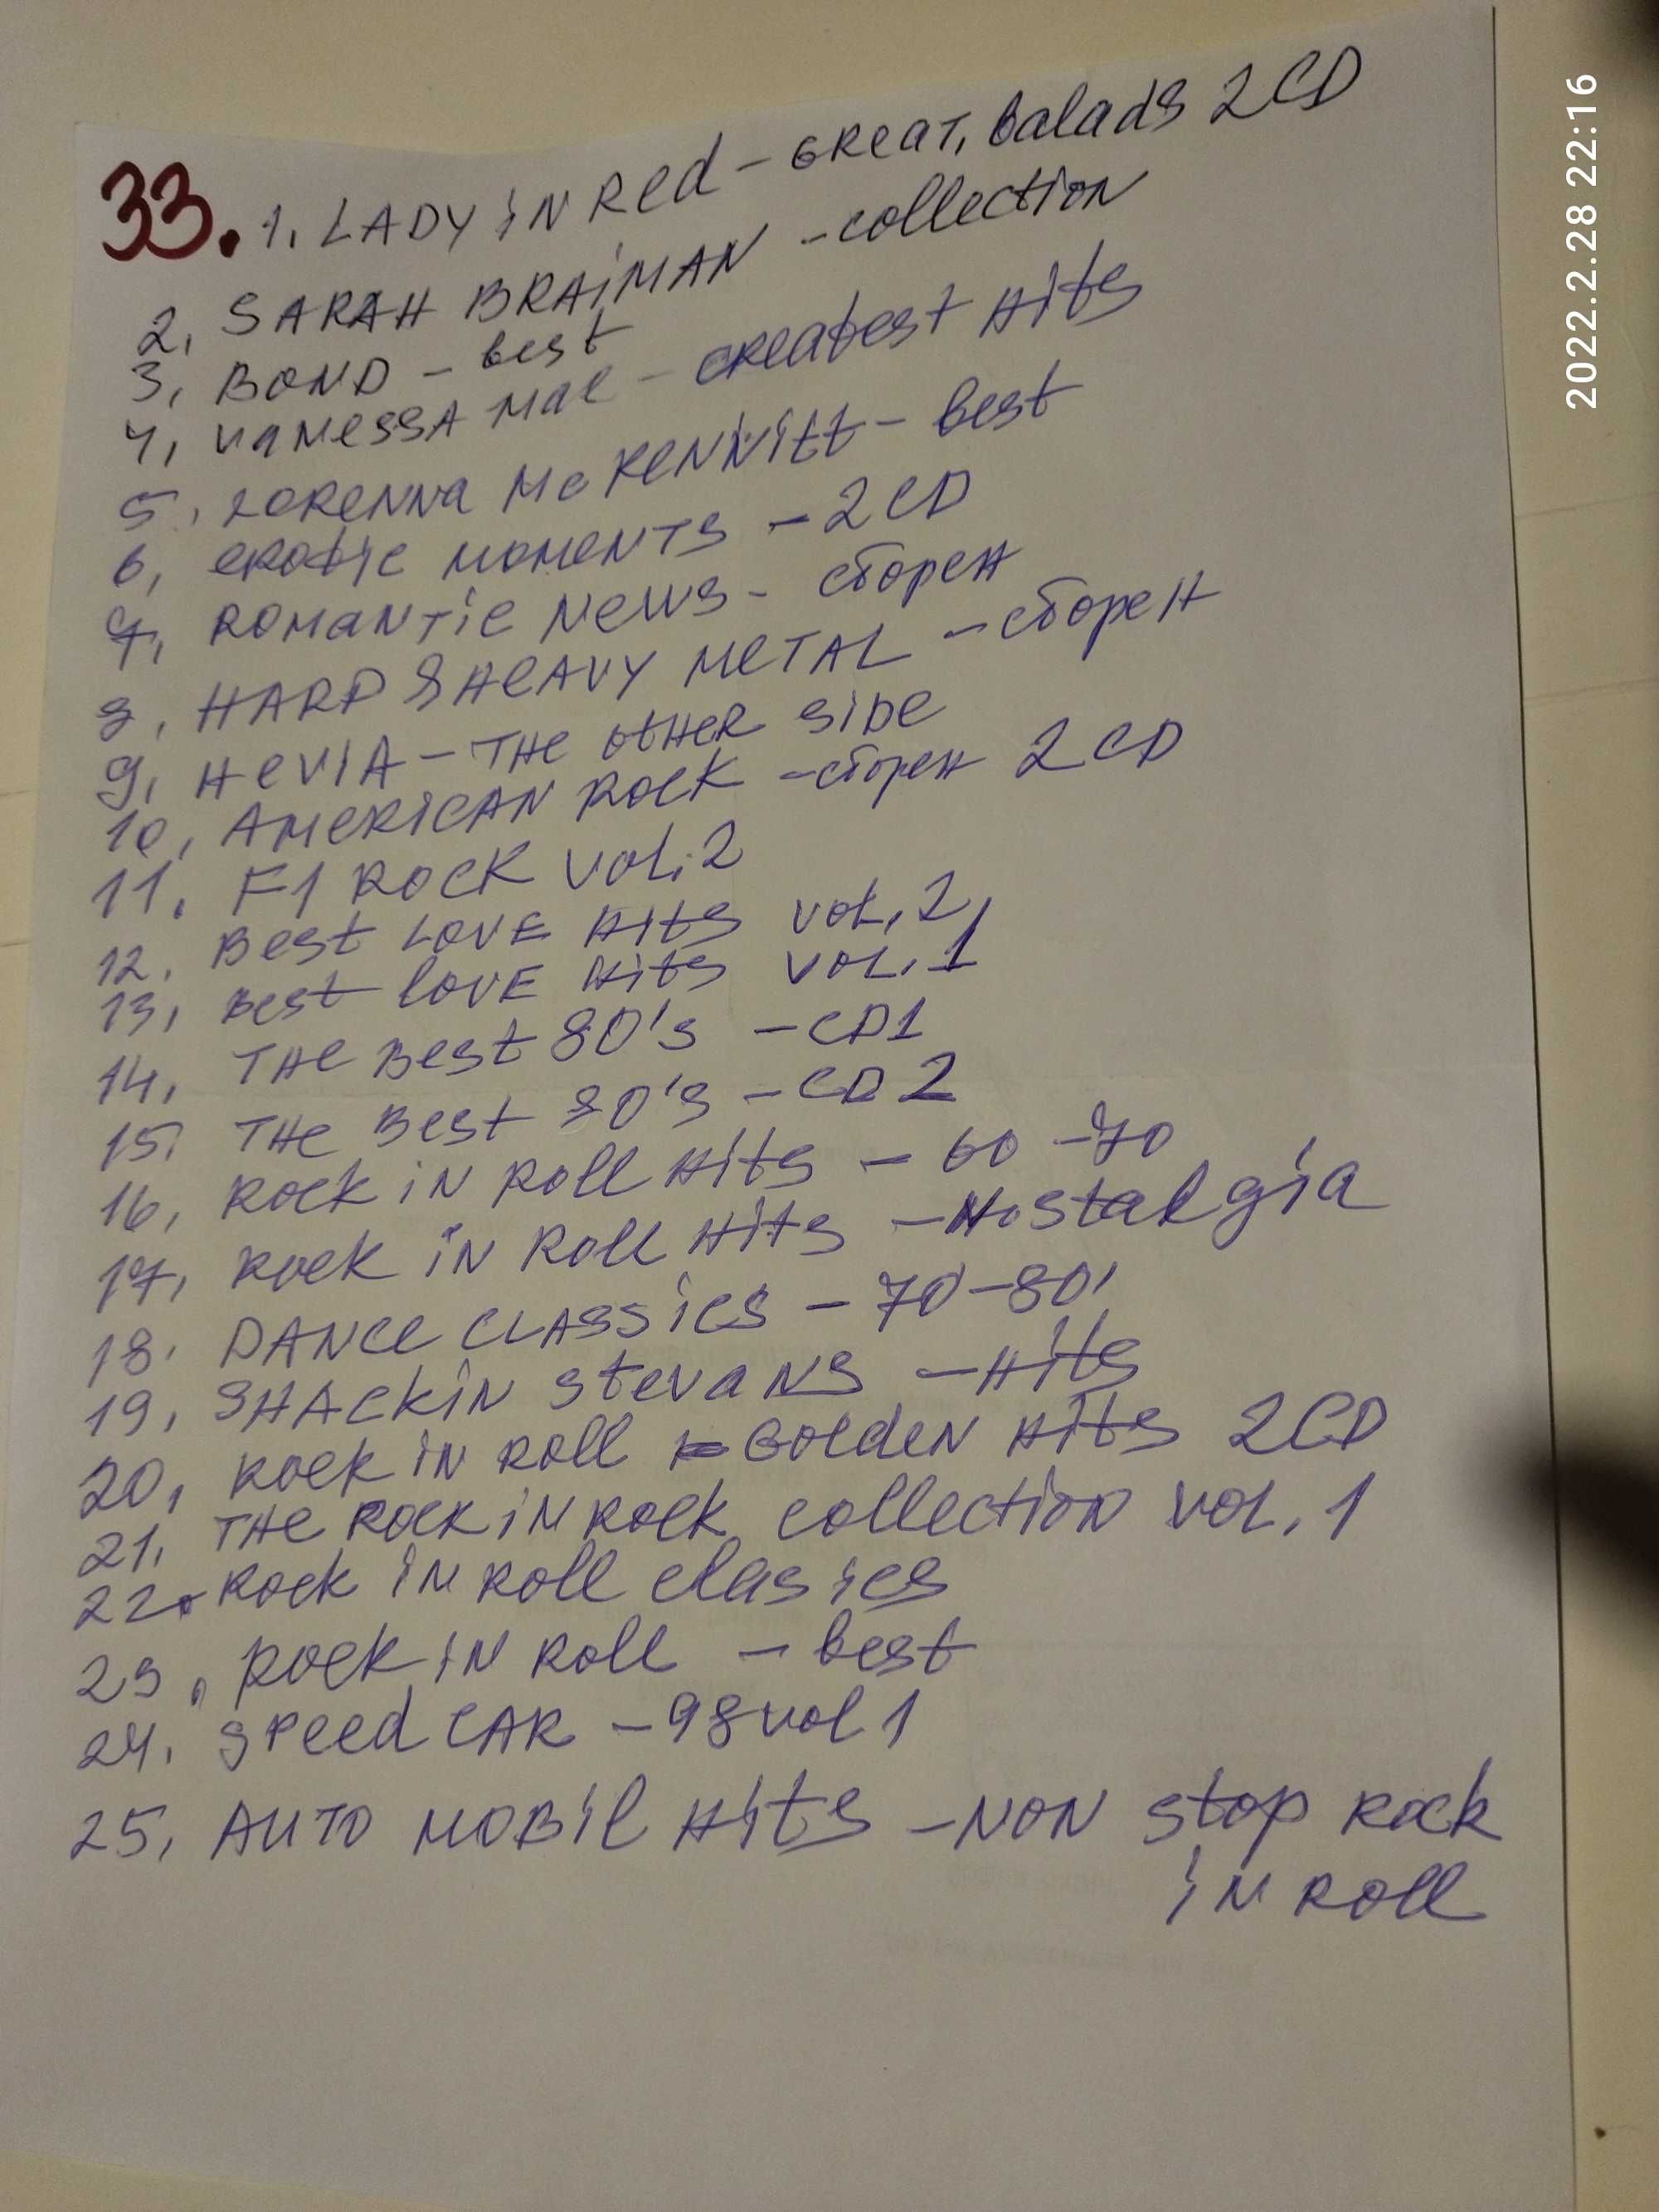 33. 1. LADY iN Red - GREAT, balads 2CD
2. SARAH BRAiMAN - collection
3. BOND - best
4. VaNessA Mae - createst Hits
5. LORENNa McKENNitt - best
6. erotic MOMeNTS - 2CD
7. ROMaNTic News - сборен
8. HARD & HeAVY MeTAL - сборен
9. HeViA - THe OtHeR SiDe
10. AMeRiCAN ROcK - сборен 2CD
11. F1 ROcK VOL. 2
12. Best LOVE Hits VOL. 2
13. Best lOVE Hits VOL. 1
14. THe Best 80's - CD1
15. THe Best 80's - CD2
16. Rock iN Roll Hits - 60 - 70
17. Rock iN Roll Hits - Nostalgia
18. DANce CLASSics - 70'-80'
19. SHAckiN StevaNS - Hits
20. Rock iN Roll - GoldeN Hits 2CD
21. THe Rock iN Rock collection VOL. 1
22. Rock iN Roll clasics
23. Rock iN Roll - best
24. Speed CAR - 98 vol 1
25. AUTO MOBil Hits - NON stop Rock
iN Roll
2022.2.28 22:16